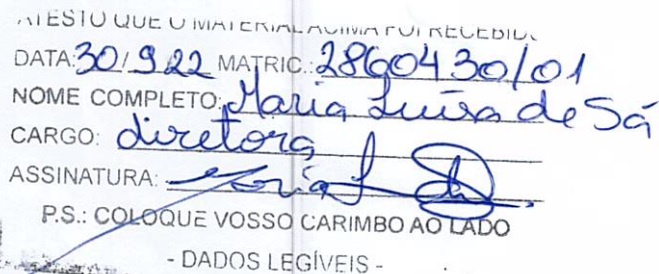 ATESTO QUE O MATERIAL ACIMA FOI RECEBIDO
DATA: 30/9.22 MATRIC.: 2860430/01
NOME COMPLETO: Maria Luísa de Sá
CARGO: diretora
ASSINATURA: Maria L
P.S.: COLOQUE VOSSO CARIMBO AO LADO
- DADOS LEGÍVEIS -